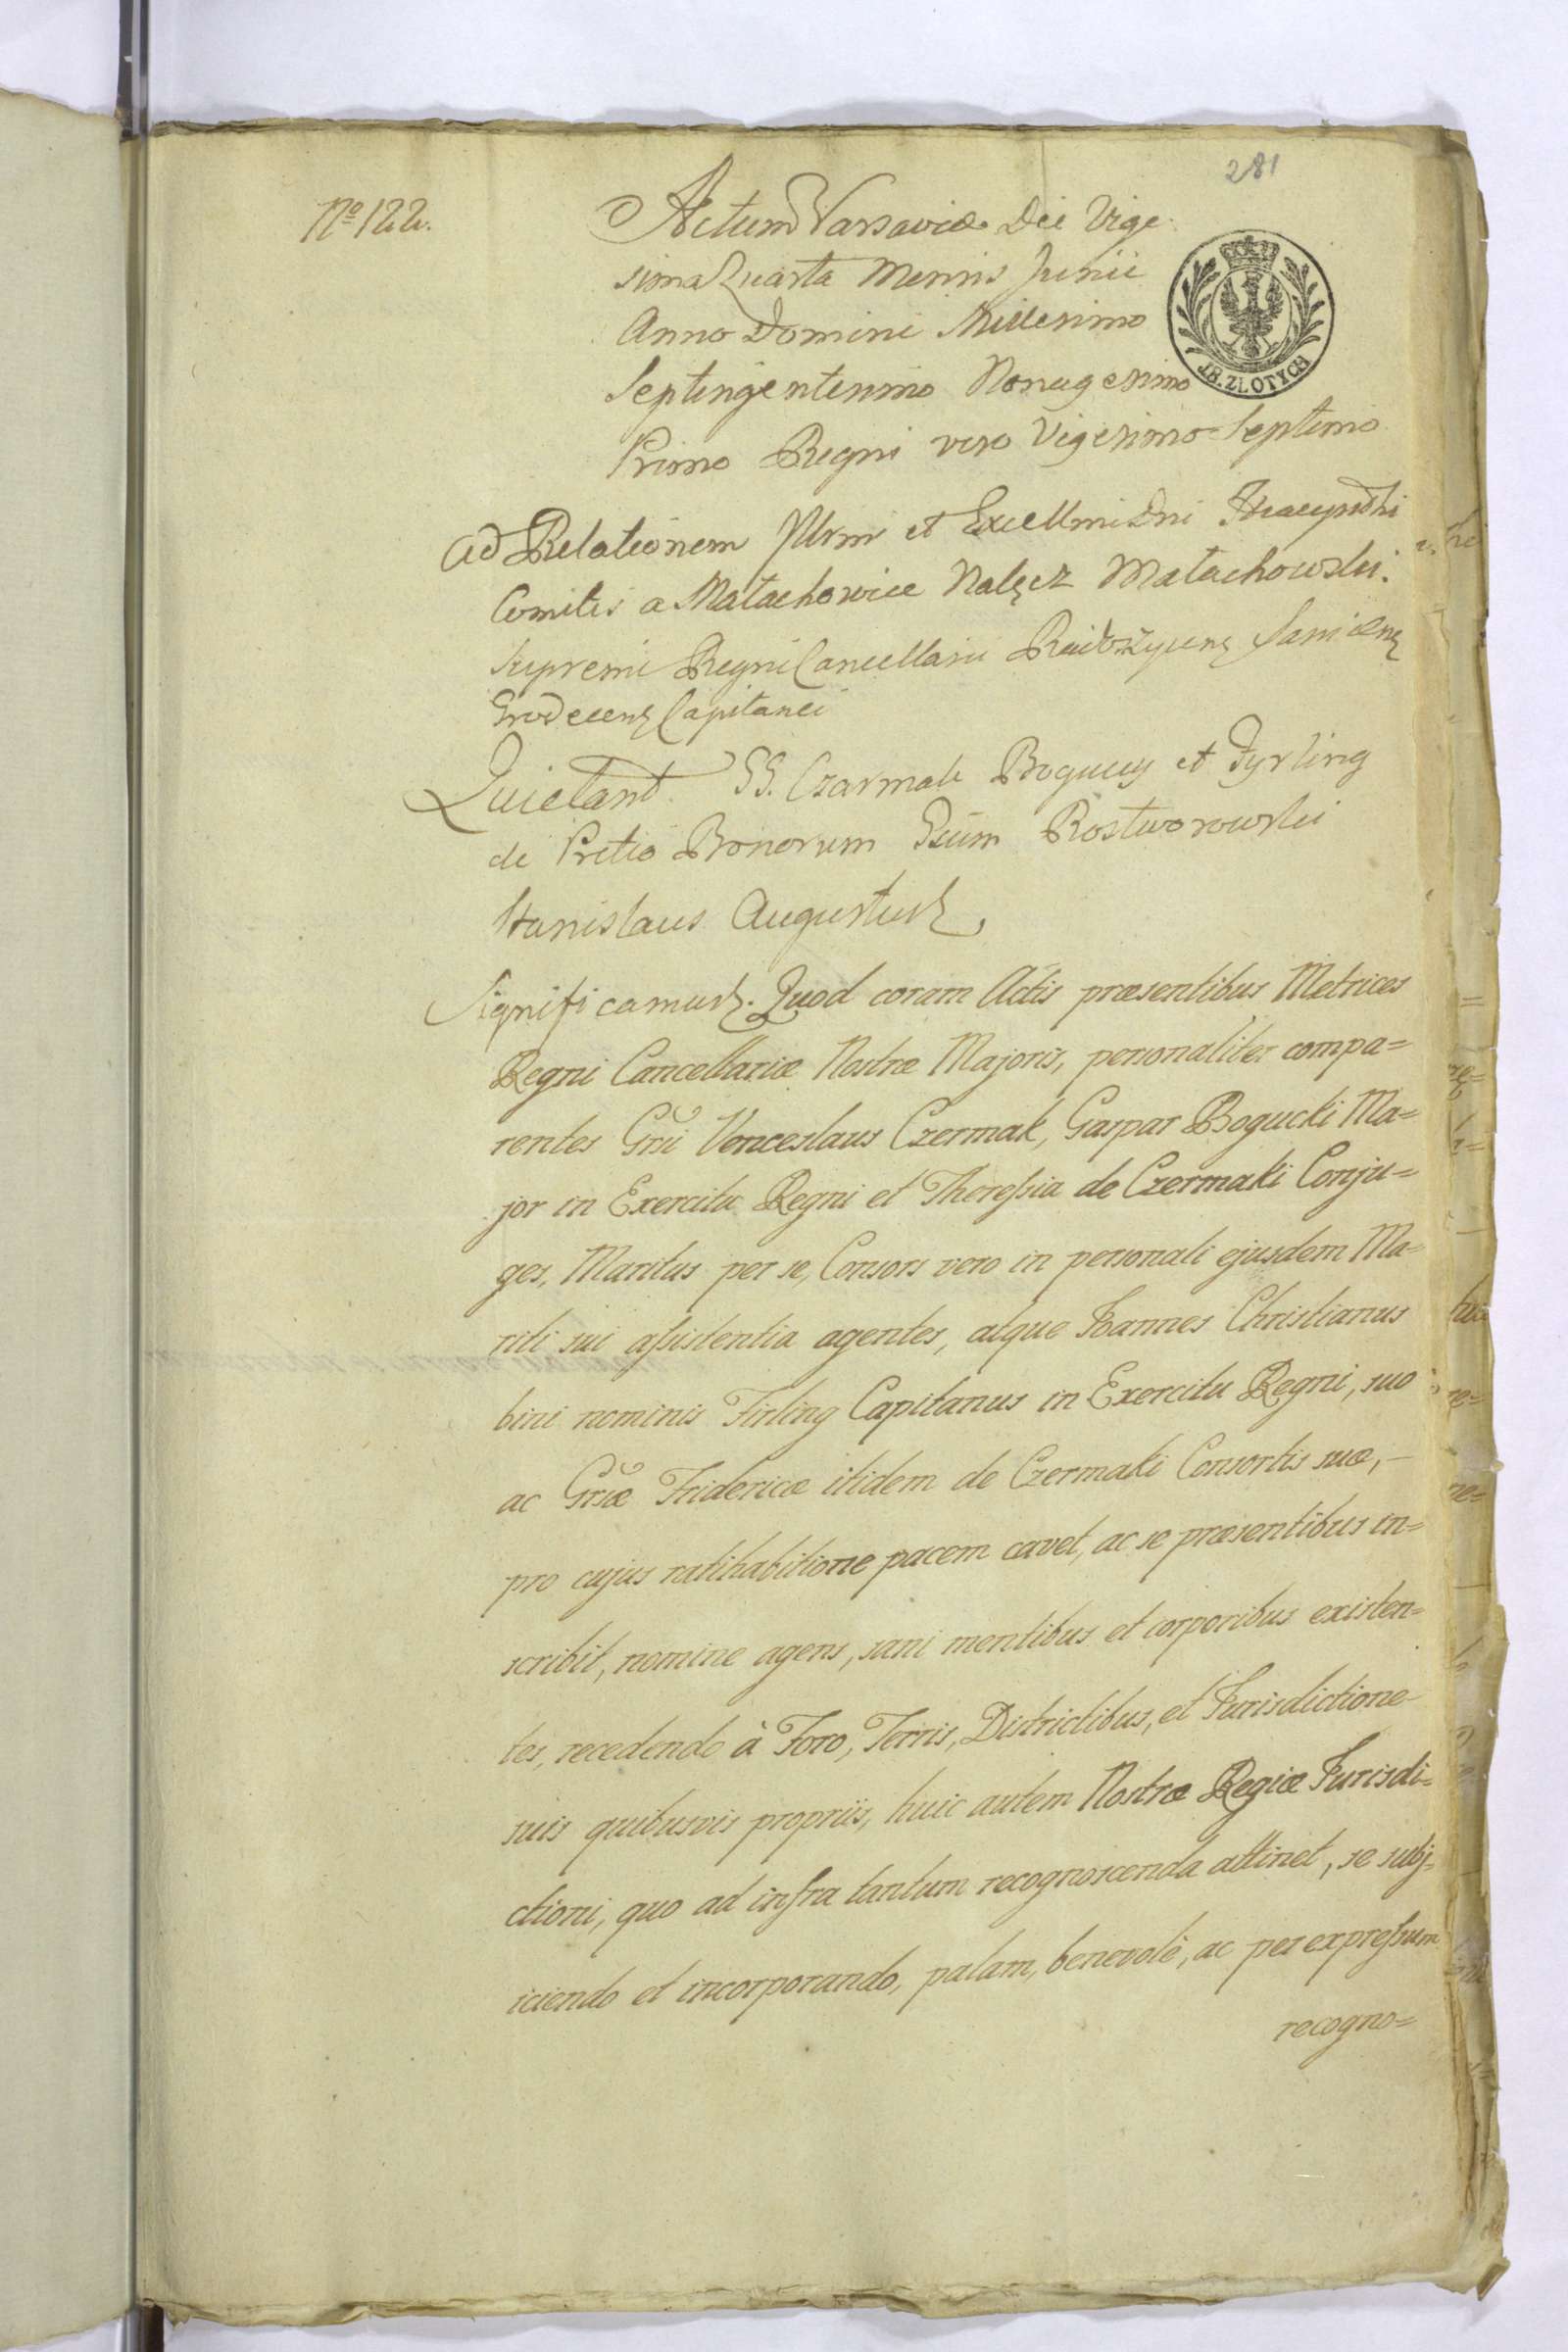 281
No 122.
Actum Varsaviæ Die Vige
sima Quarta Mensis Junii
Anno Domini Millesimo
Septingentesimo Nonagesimo
Primo Regni vero Vigesimo Septimo
JB. ZŁOTYCH
Ad Relationem Illrmi et Excellmi Dni Hyacynthi
Comitis a Małachowice Nałęcz Małachowski
Supremi Regni Cancellarii
Grodecens Capitanei
Quietant GG. Czarmak Bogucey et Fyrling
de Pretio Bonorum Gsum Rostworowski
Stanislaus Augustus
Significamus. Quod coram Actis præsentibus Metrices
Regni Cancellariæ Nostræ Majoris, personaliter compa=
rentes Grsi Venceslaus Czermak, Gaspar Bogucki Ma=
jor in Exercitu Regni et Theressia de Czermaki Conju=
ges, Maritus per se, Consors vero in personali ejusdem Ma=
riti sui assistentia agentes, atque Ioannes Christianus
bini nominis Firling Capitanus in Exercitu Regni, suo
ac Grsæ Fridericæ itidem de Czermaki Consortis suæ, –
pro cujus ratihabitione pacem cavet, ac se præsentibus in=
scribit, nomine agens, sani mentibus et corporibus existen=
tes, recedendo à Foro, Terris, Districtibus, et Iurisdictione
suis quibusvis propriis, huic autem Nostræ Regiæ Iurisdi=
ctioni, quo ad infra tantum recognoscenda attinet, se subj=
iciendo et incorporando, palam, benevolè, ac per expressum
recogno=